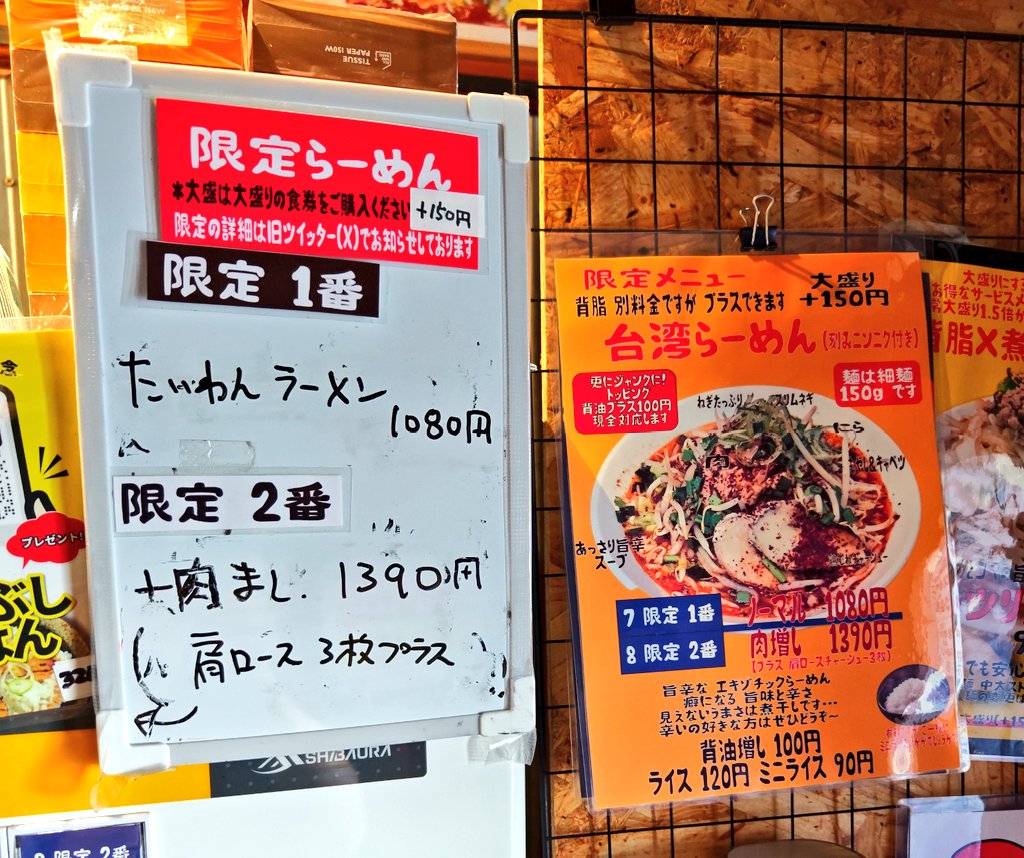 TISSUE
PAPER 150W
限定らーめん
*大盛は大盛りの食券をご購入ください
+150円
限定の詳細は旧ツイッター(X)でお知らせしております
限定 1番
たいわん ラーメン
1080円
限定 2番
+肉まし. 1390円
肩ロース 3枚プラス
プレゼント!
SHIBAURA
限定 2番
限定メニュー
大盛り
+150円
背脂 別料金ですが プラスできます
台湾らーめん(刻みニンニク付き)
更にジャンクに!
トッピング
背油プラス100円
現金対応します
麺は細麺
150g です
ねぎたっぷり
スリムネギ
にら
肉
あっさり旨辛
スープ
7 限定 1番
ノーマル 1080円
8 限定 2番
肉増し 1390円
(プラス 肩ロースチャーシュー3枚)
旨辛な エキゾチックらーめん
癖になる 旨味と辛さ
見えないうまさは煮干しです…
辛いの好きな方はぜひどうぞ~
背油増し 100円
ライス 120円 ミニライス 90円
大盛りにす
お得なサービスメ
大盛り1.5倍か
背脂X煮
でも安心